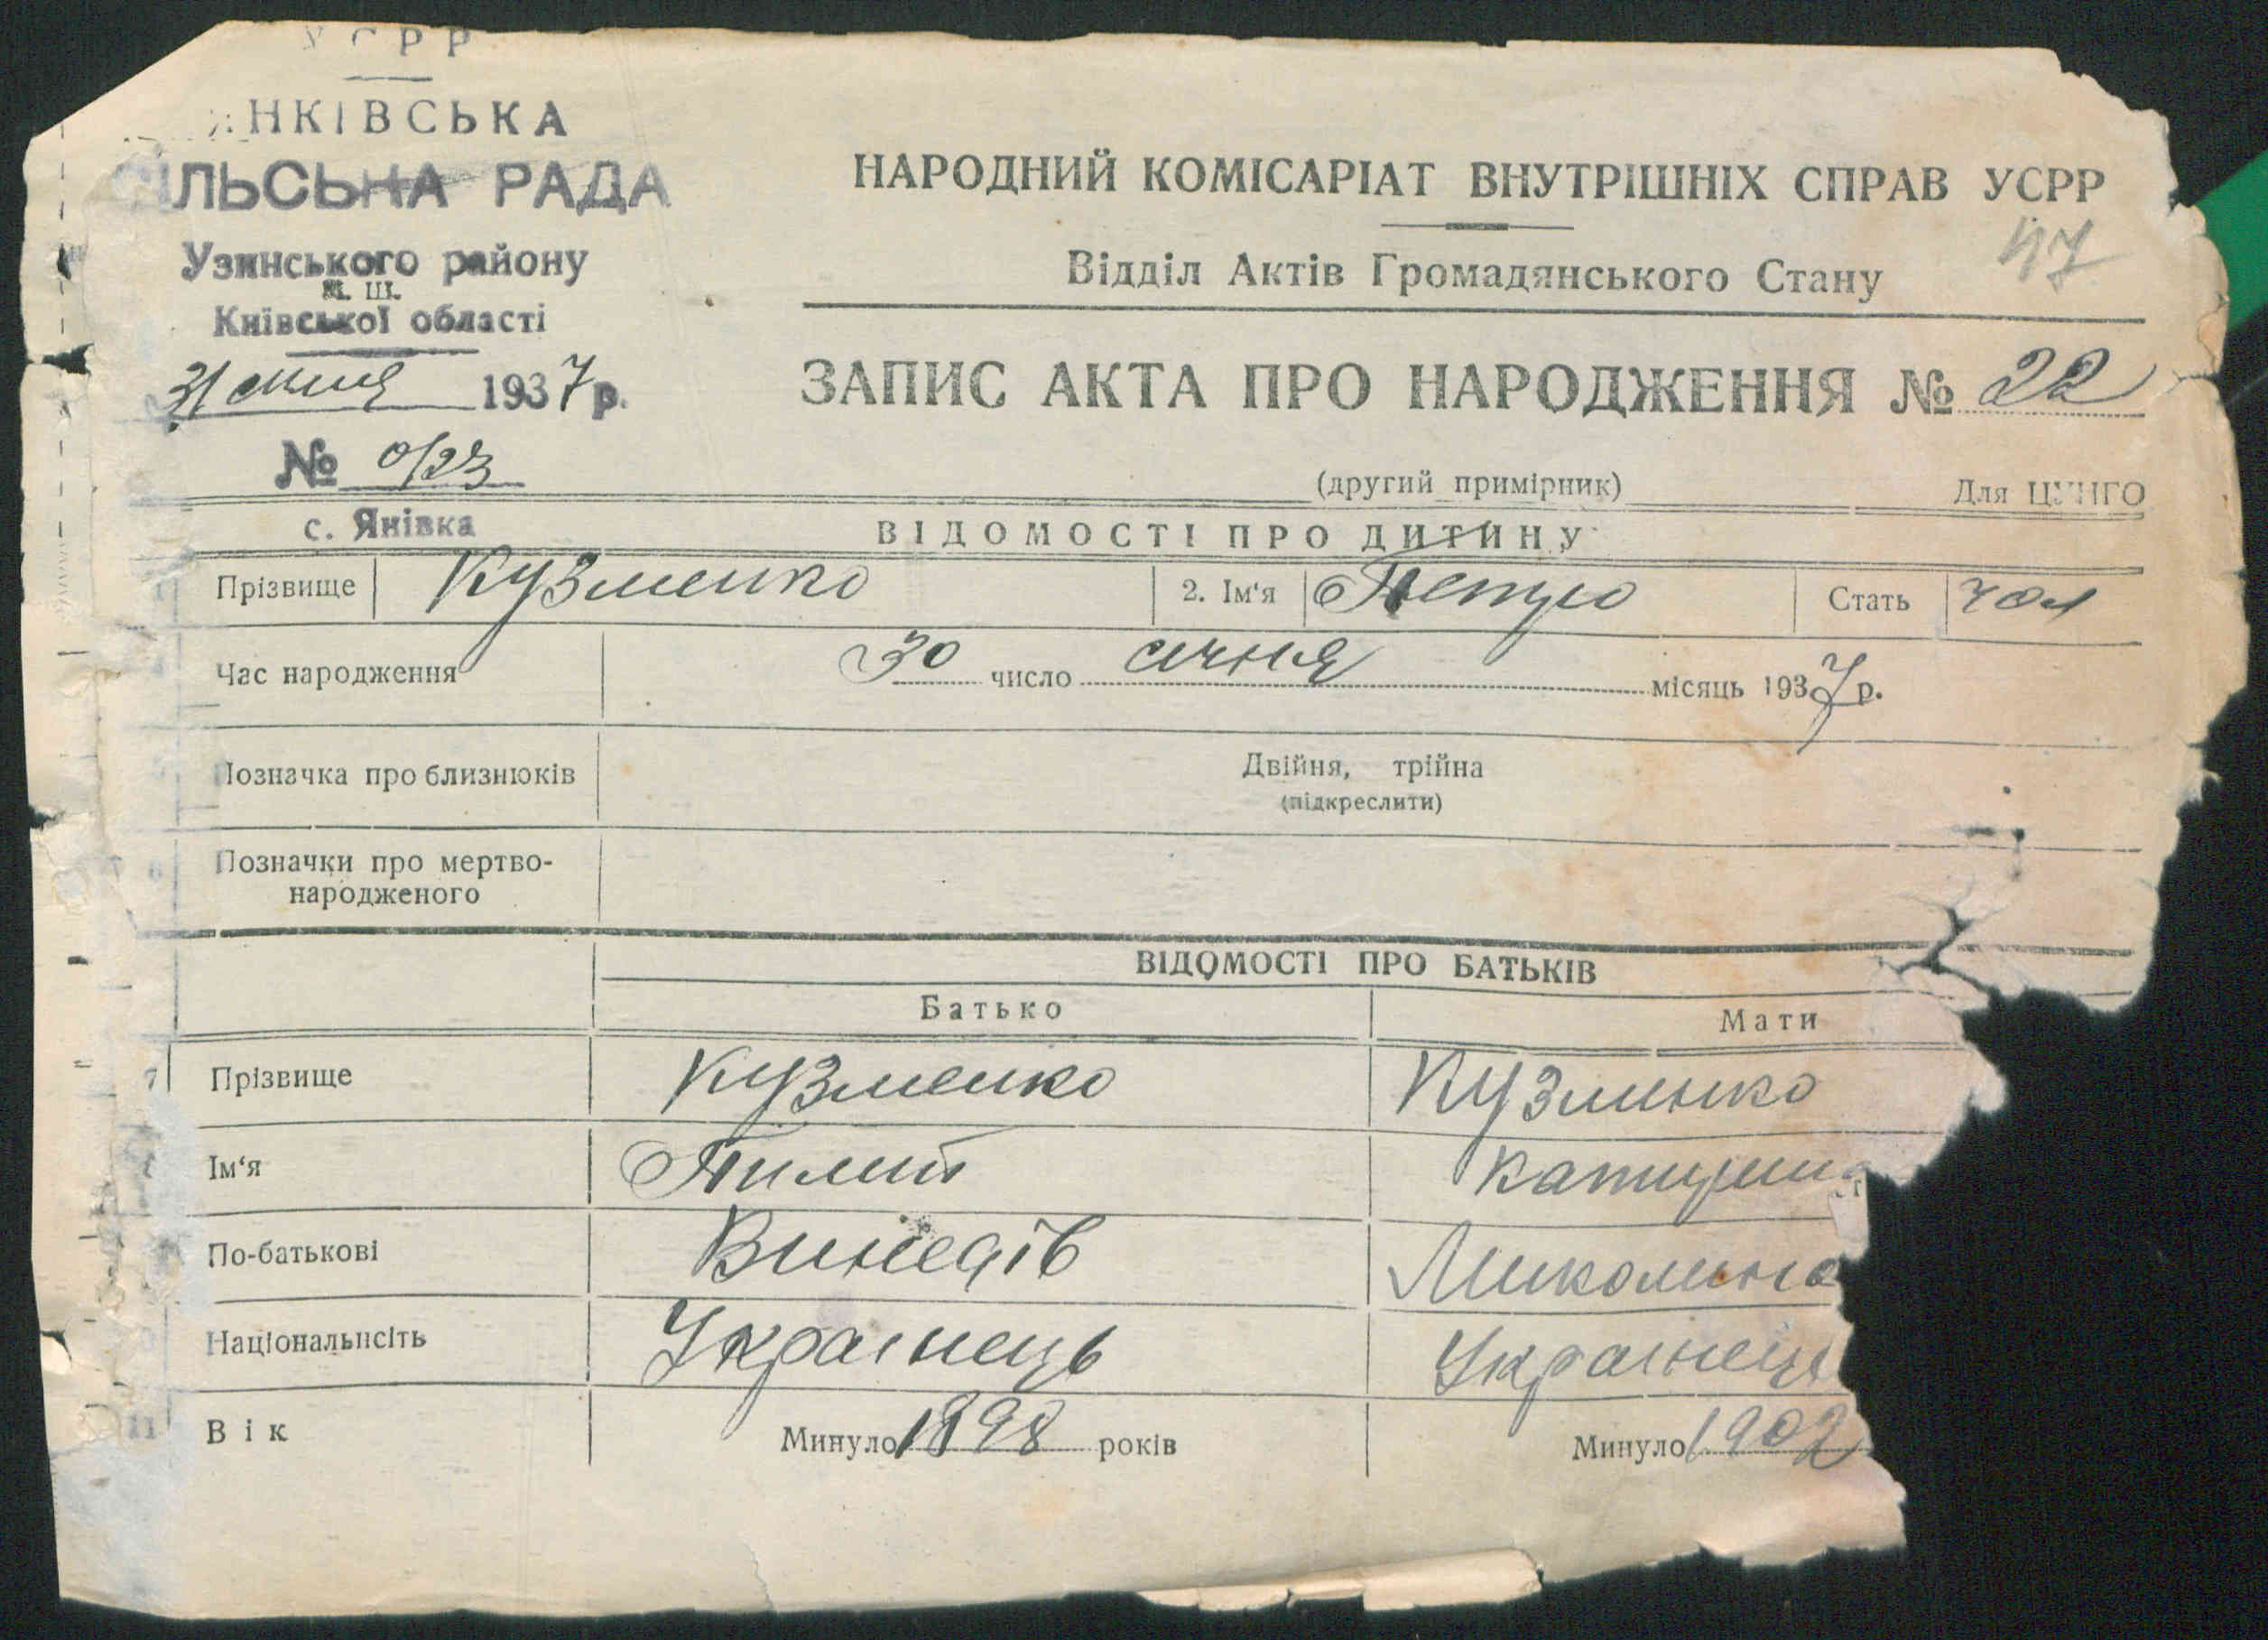 УСРР
НКІВСЬКА
СІЛЬСЬКА РАДА
Узинського району
Київської області
31 січня 1937 р.
№ 0/23
с. Янівка
НАРОДНИЙ КОМІСАРІАТ ВНУТРІШНІХ СПРАВ УСРР
47
Відділ Актів Громадянського Стану
ЗАПИС АКТА ПРО НАРОДЖЕННЯ № 22
(другий примірник) Для ЦУНГО
ВІДОМОСТІ ПРО ДИТИНУ
Прізвище Кузменко 2. Ім'я Петро Стать чол
Час народження 30 число січня місяць 1937 р.
Позначка про близнюків Двійня, трійна
(підкреслити)
Позначки про мертво-
народженого
ВІДОМОСТІ ПРО БАТЬКІВ
Батько Мати
7 Прізвище Кузменко Кузминко
Ім'я Пилип
По-батькові Миколина
Національність Украінець Украінець
11 Вік Минуло 1898 років Минуло 1902